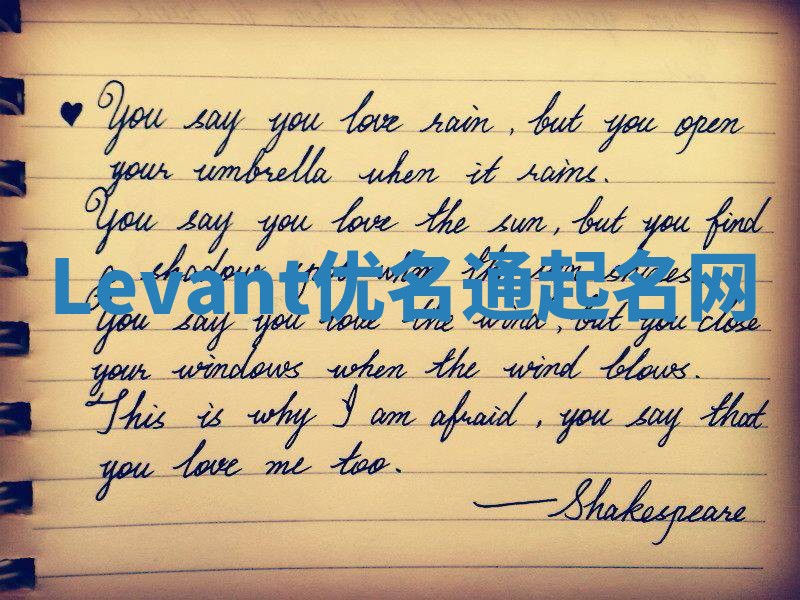 ♥ You say you love rain, but you open
your umbrella when it rains.
You say you love the sun, but you find
a shadow spot when the sun shines
Levant优名通起名网
You say you love the wind, but you close
your windows when the wind blows.
This is why I am afraid, you say that
you love me too.
— Shakespeare